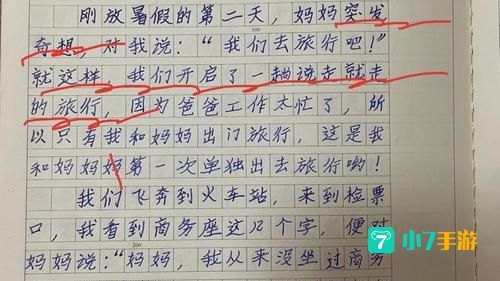 刚放暑假的第二天，妈妈突发
奇想，对我说：“我们去旅行吧！”
就这样，我们开启了一趟说走就走
的旅行，因为爸爸工作太忙了，所
以只有我和妈妈出门旅行，这是我
和妈妈妈第一次单独出去旅行哟！
我们飞奔到火车站，来到检票
口，我看到商务座这几个字，便对
妈妈说：“妈妈，我从来没坐过商务
100
200
小7手游